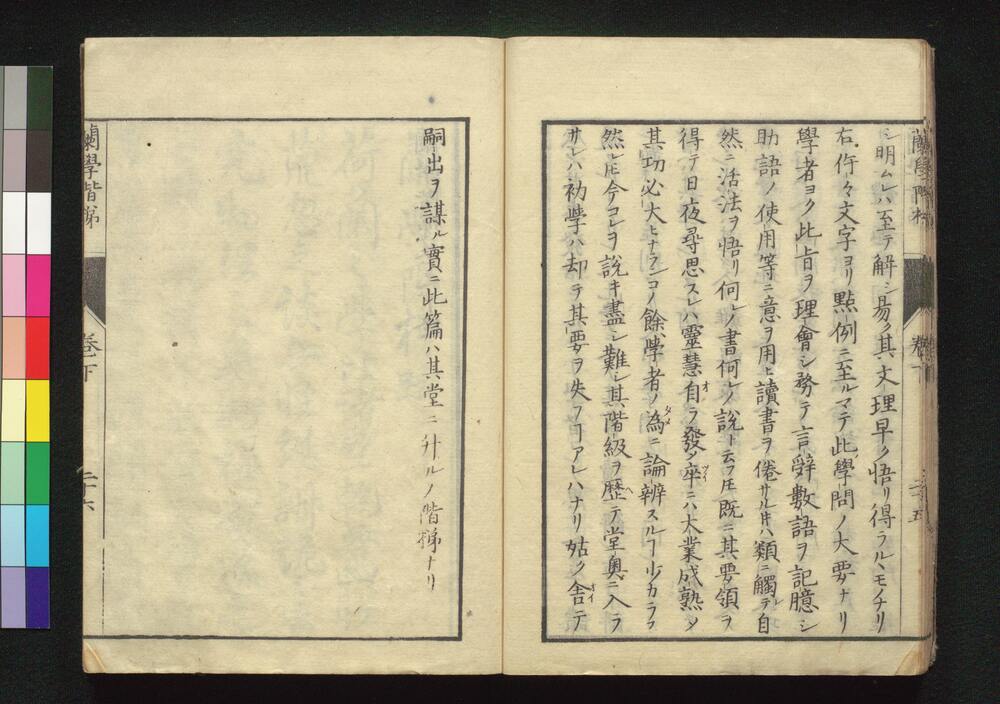 シ明ムレハ至テ解シ易ク其文理早ク悟リ得ラル丶モノナリ
右件々文字ヨリ點例ニ至ルマテ此學問ノ大要ナリ
學者ヨク此旨ヲ理會シ務テ言辭數語ヲ記臆シ
助語ノ使用等ニ意ヲ用ヒ讀書ヲ倦サル𪜈ハ類ニ觸レテ自
然ニ活法ヲ悟リ何レノ書何レノ說ト云フ𪜈既ニ其要領ヲ
得テ日夜尋思スレハ靈慧自オノラ發ク卒ツイニハ大業成熟メ
其功必大ヒナランコノ餘學者ノ爲タメニ論辨スルヿ少カラス
然レ𪜈今コレヲ說キ盡シ難シ其階級ヲ歷ヘテ堂奧ニ入ラ
サレハ初學ハ却テ其要ヲ失フヿアレハナリ姑ク舍オイテ
嗣出ヲ謀ル實ニ此篇ハ其堂ニ升ルノ階梯ナリ
蘭學階梯
卷下
二十六